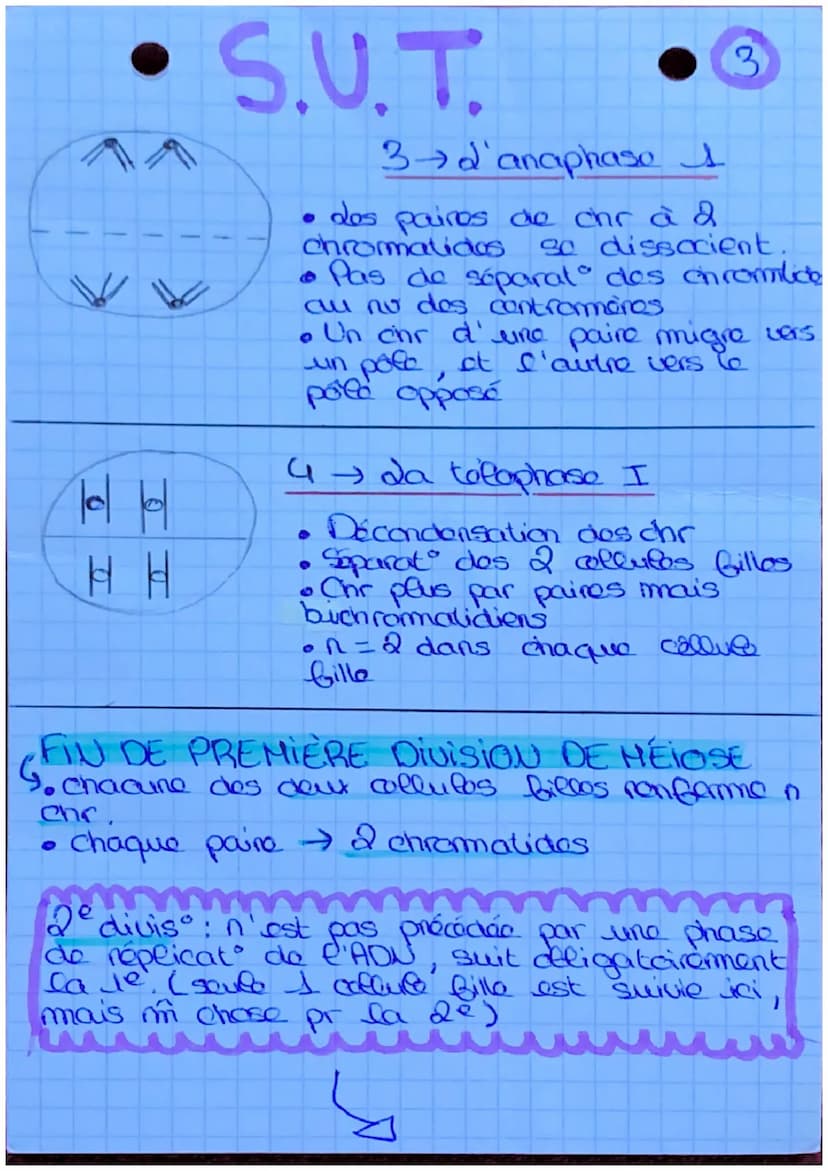 S.V.T.
3
3 → L'anaphase 1
• Les paires de chr à 2
chromatides se dissocient.
• Pas de séparat° des chromtide
au nv des centromères
• Un chr d'une paire migre vers
un pôle, et l'autre vers le
pôle opposé
4 → La télophase I
• Décondensation des chr
• Séparat° des 2 cellules filles
• Chr plus par paires mais
bichromatidiens
• n = 2 dans chaque cellule
fille
FIN DE PREMIÈRE DIVISION DE MÉIOSE
↳ • chacune des deux cellules filles renferme n
chr.
• chaque paire → 2 chromatides
2e divis° : n'est pas précédée par une phase
de réplicat° de l'ADN, suit obligatoirement
la 1e. (seule 1 cellule fille est suivie ici,
mais m̂ chose pr la 2e)